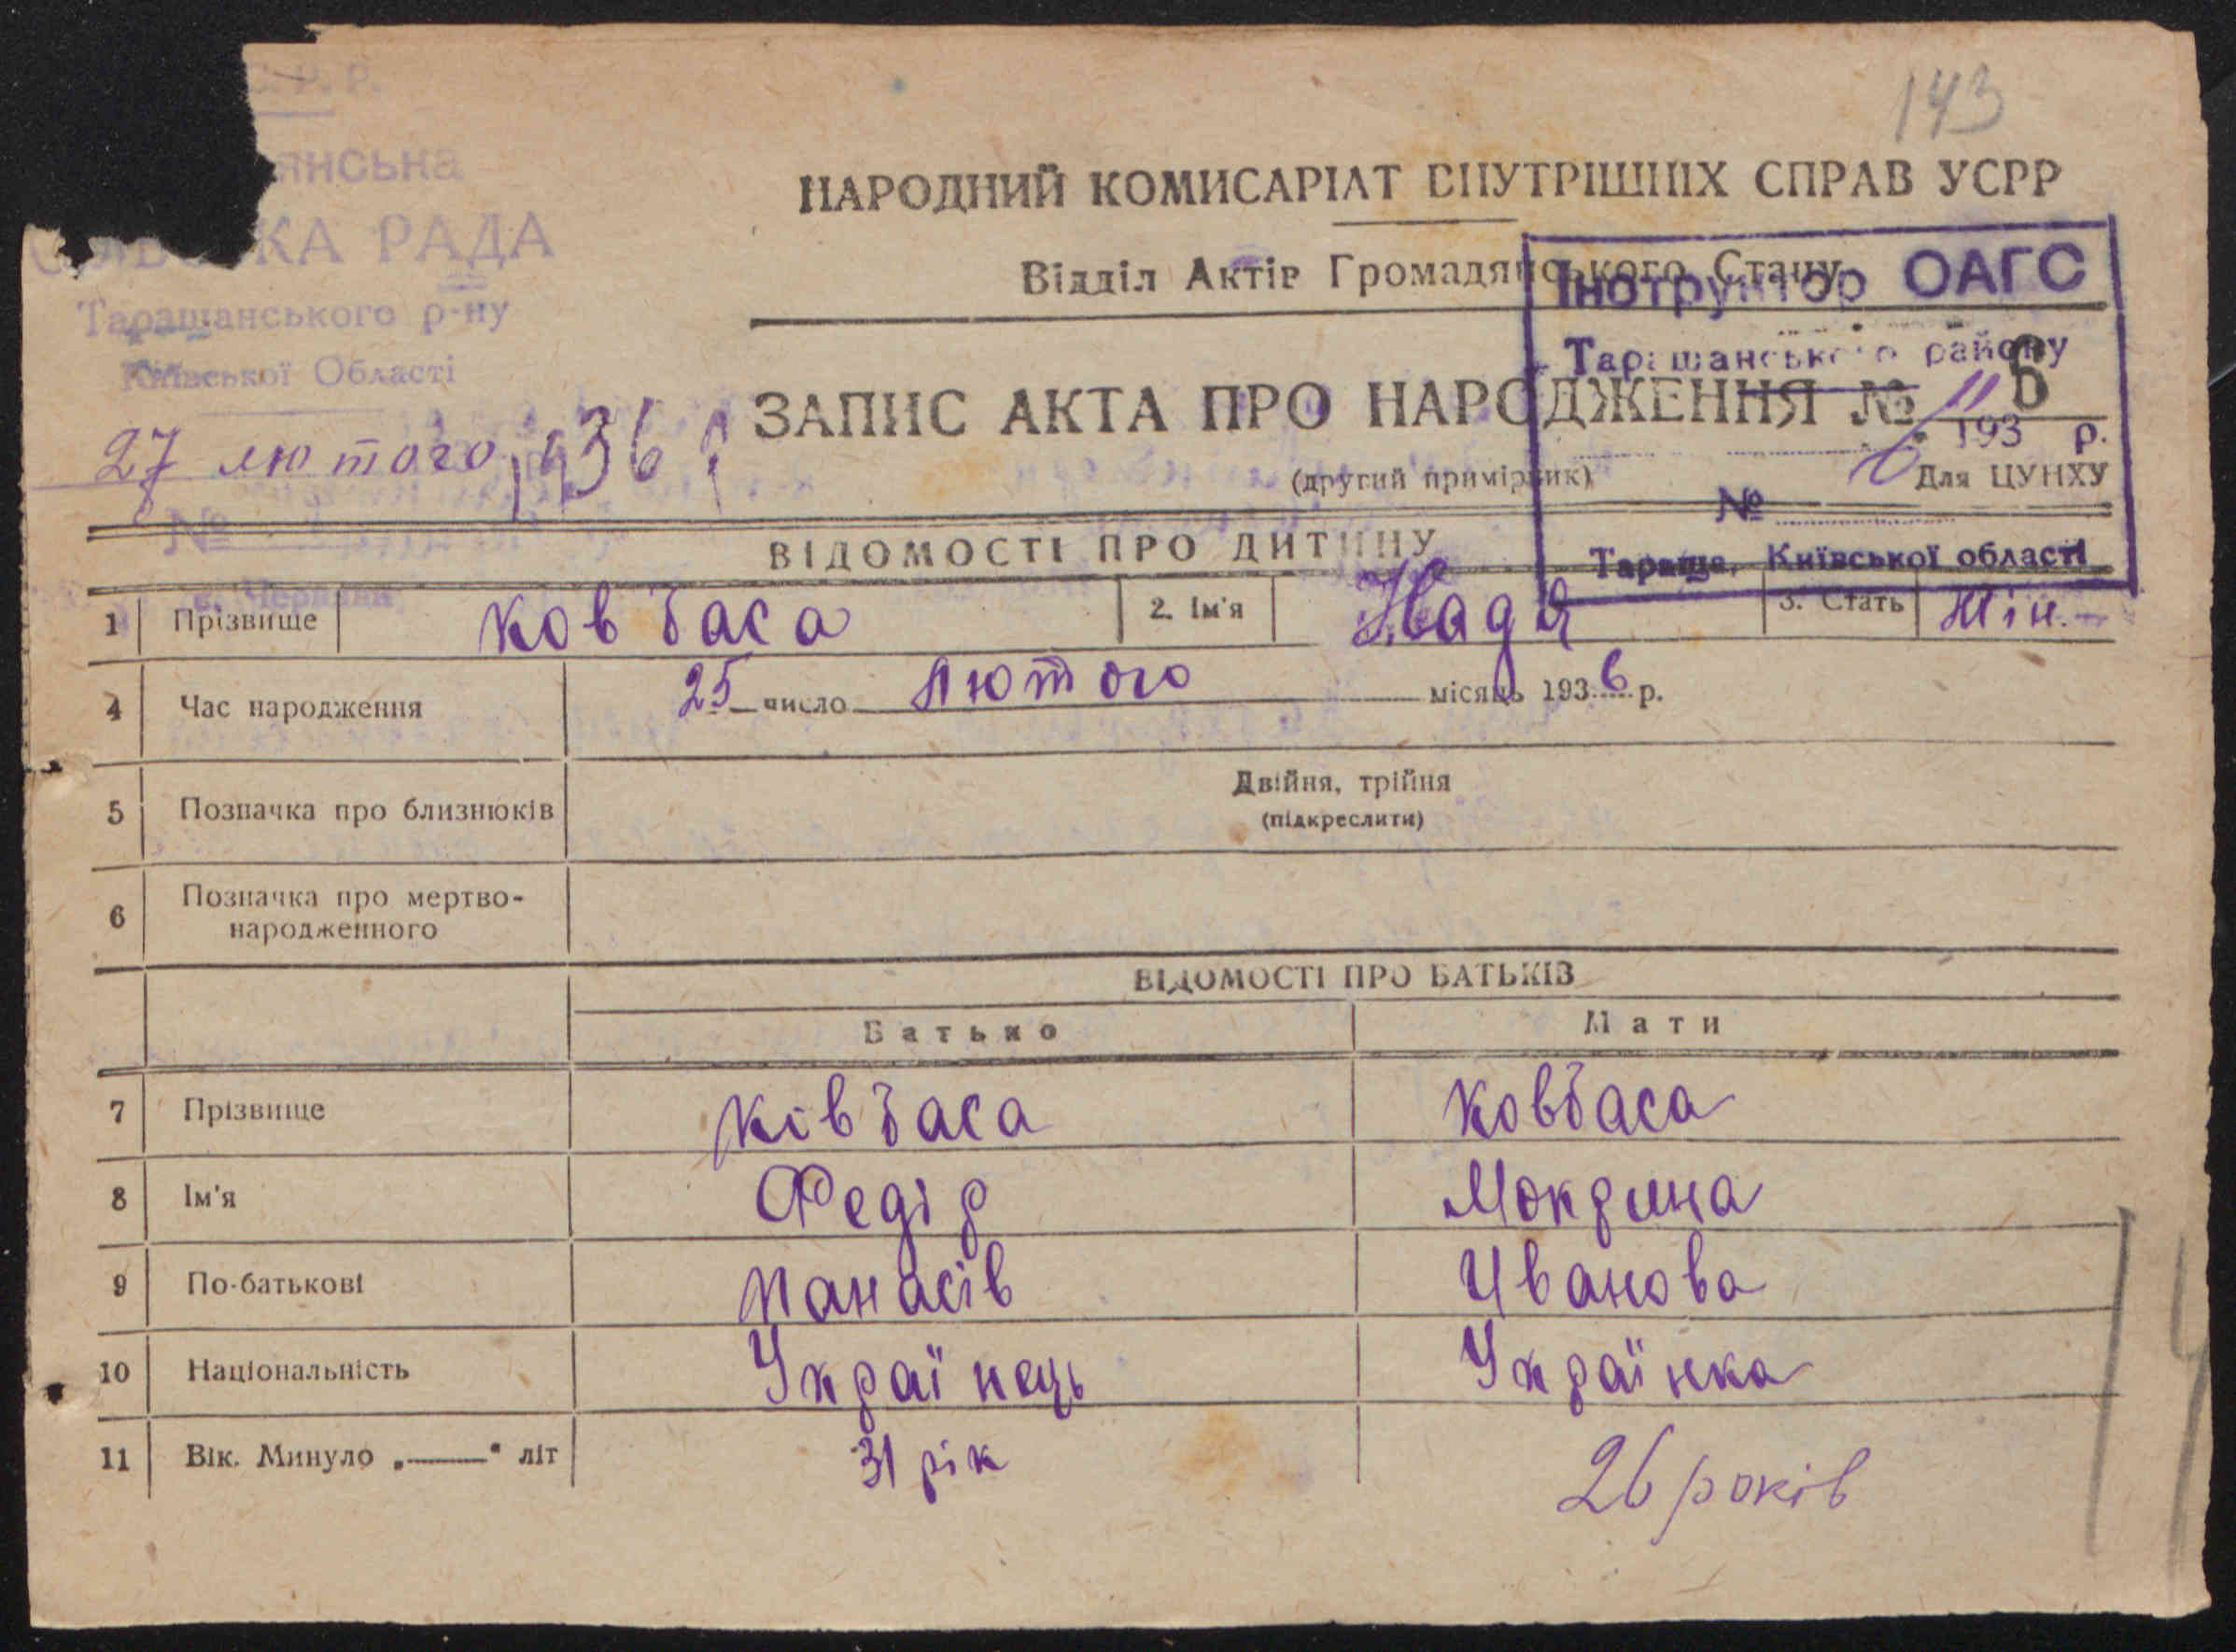 143
С. Р. Р.
янська
КА РАДА
Таращанського р-ну
Київської Області
27 лютого 1936 р
№
с. Чернин
НАРОДНИЙ КОМИСАРІАТ ВНУТРІШНІХ СПРАВ УСРР
Відділ Актів Громадянського Стану
Інструктор ОАГС
Таращанського району
193 р.
№
Тараща, Київської області
ЗАПИС АКТА ПРО НАРОДЖЕННЯ № 6
(другий примірник)
Для ЦУНХУ
ВІДОМОСТІ ПРО ДИТИНУ
1 Прізвище Ковбаса 2. Ім'я Надя 3. Стать Жін.
4 Час народження 25 число лютого місяць 1936 р.
5 Позначка про близнюків Двійня, трійня
(підкреслити)
6 Позначка про мертво-
народженного
ВІДОМОСТІ ПРО БАТЬКІВ
Батько Мати
7 Прізвище Ковбаса Ковбаса
8 Ім'я Федір Мокрина
9 По-батькові Панасів Иванова
10 Національність Українець Українка
11 Вік. Минуло „——“ літ 31 рік 26 років